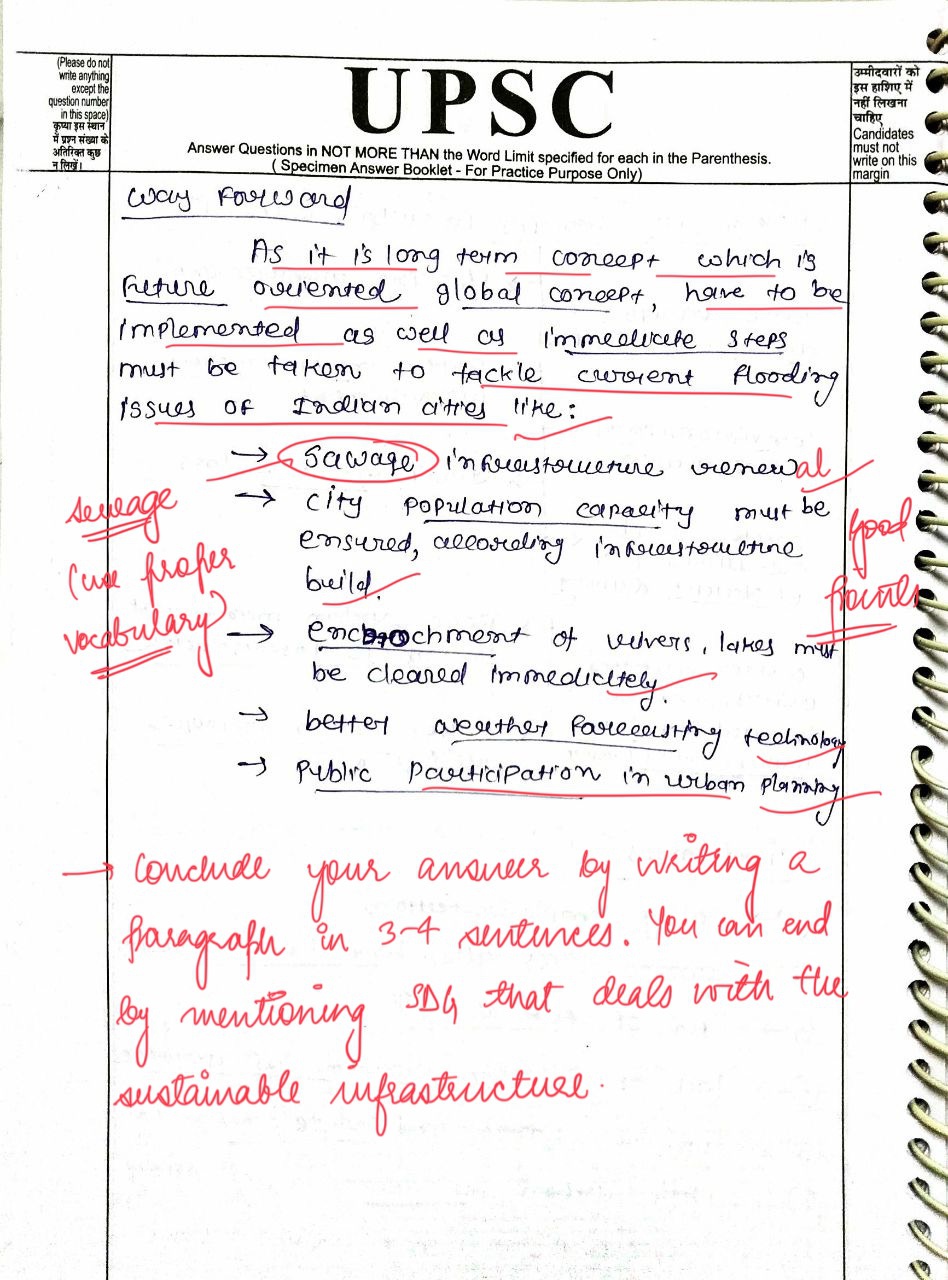 (Please do not
write anything
except the
question number
in this space)
कृप्या इस स्थान
में प्रश्न संख्या के
अतिरिक्त कुछ
न लिखें।
UPSC
Answer Questions in NOT MORE THAN the Word Limit specified for each in the Parenthesis.
( Specimen Answer Booklet - For Practice Purpose Only)
उम्मीदवारों को
इस हाशिए में
नहीं लिखना
चाहिए
Candidates
must not
write on this
margin
Way Forward
As it is long term concept which is
future oriented global concept, have to be
implemented as well as immediate steps
must be taken to tackle current flooding
issues of Indian cities like:
→ Sawage infrastructure renewal
sewage
(use proper
vocabulary)
→ city population capacity must be
ensured, according infrastructure
build.
good
points
→ encroochment of rivers, lakes must
be cleared immediately.
→ better weather forecasting technology
→ public participation in urban planning
→ Conclude your answer by writing a
paragraph in 3-4 sentences. You can end
by mentioning SDG that deals with the
sustainable infrastructure.